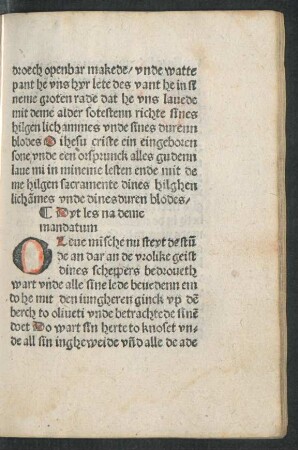 droech openbar makede/ vnde watte
pant he vns hyr lete des vant he in si
neme groten rade dat he vns lauede
mit deme alder sotesten richte sines
hilgen lichammes vnde sines duren
blodes O ihesu criste ein eingeboren
sone vnde een orsprunck alles guden
laue mi in mineme lesten ende mit de
me hilgen sacramente dines hilghen
lichāmes vnde dines duren blodes/
¶ Dyt les na deme
mandatum
O Leue mīsche nu steyt de stū
de an dar an de vrolike geist
dines scheppers bedroueth
wart vnde alle sine lede beuedenn ein
do he mit den iungheren ginck vp dē
berch to oliueti vnde betrachtede sinē
doet Do wart sin herte to knoset vn-
de all sin ingheweide vñd alle de ade